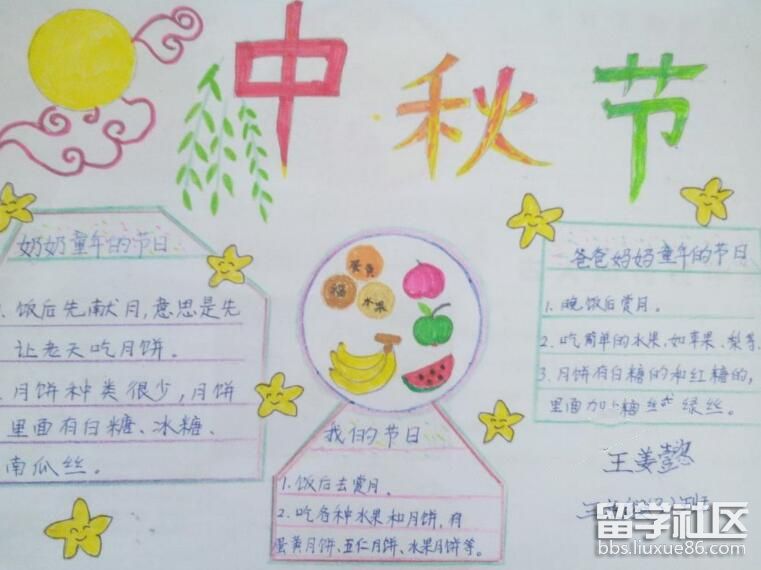 中秋节
奶奶童年的节日
饭后先献月,意思是先
让老天吃月饼。
月饼种类很少,月饼
里面有白糖、冰糖、
南瓜丝。
蛋黄
福
水果
我们的节日
1.饭后去赏月。
2.吃各种水果和月饼,有
蛋黄月饼、五仁月饼、水果月饼等。
爸爸妈妈童年的节日
1.晚饭后赏月。
2.吃简单的水果,如苹果、梨等
3.月饼有白糖的和红糖的,
里面加 丝 绿丝。
王姜懿
留学社区
bbs.liuxue86.com